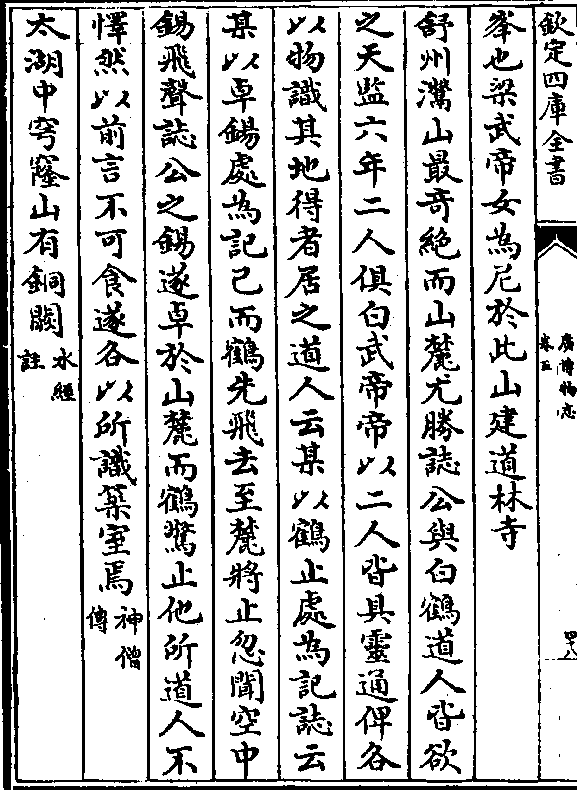 欽定四庫全書
廣博物志
卷五
四八
峯也梁武帝女為尼於此山建道林寺
舒州灊山最竒絶而山麓尤勝誌公與白鶴道人皆欲
之天監六年二人俱白武帝帝以二人皆具靈通俾各
以物識其地得者居之道人云某以鶴止處為記誌云
某以卓錫處為記已而鶴先飛去至麓將止忽聞空中
錫飛聲誌公之錫遂卓於山麓而鶴驚止他所道人不
懌然以前言不可食遂各以所識築室焉神僧傳
太湖中穹窿山有銅闕水經註